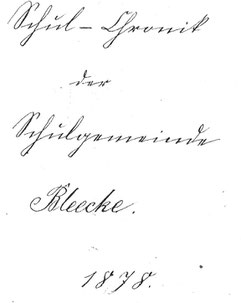 Schul-Chronik
der
Schulgemeinde
Bleecke.
1878.